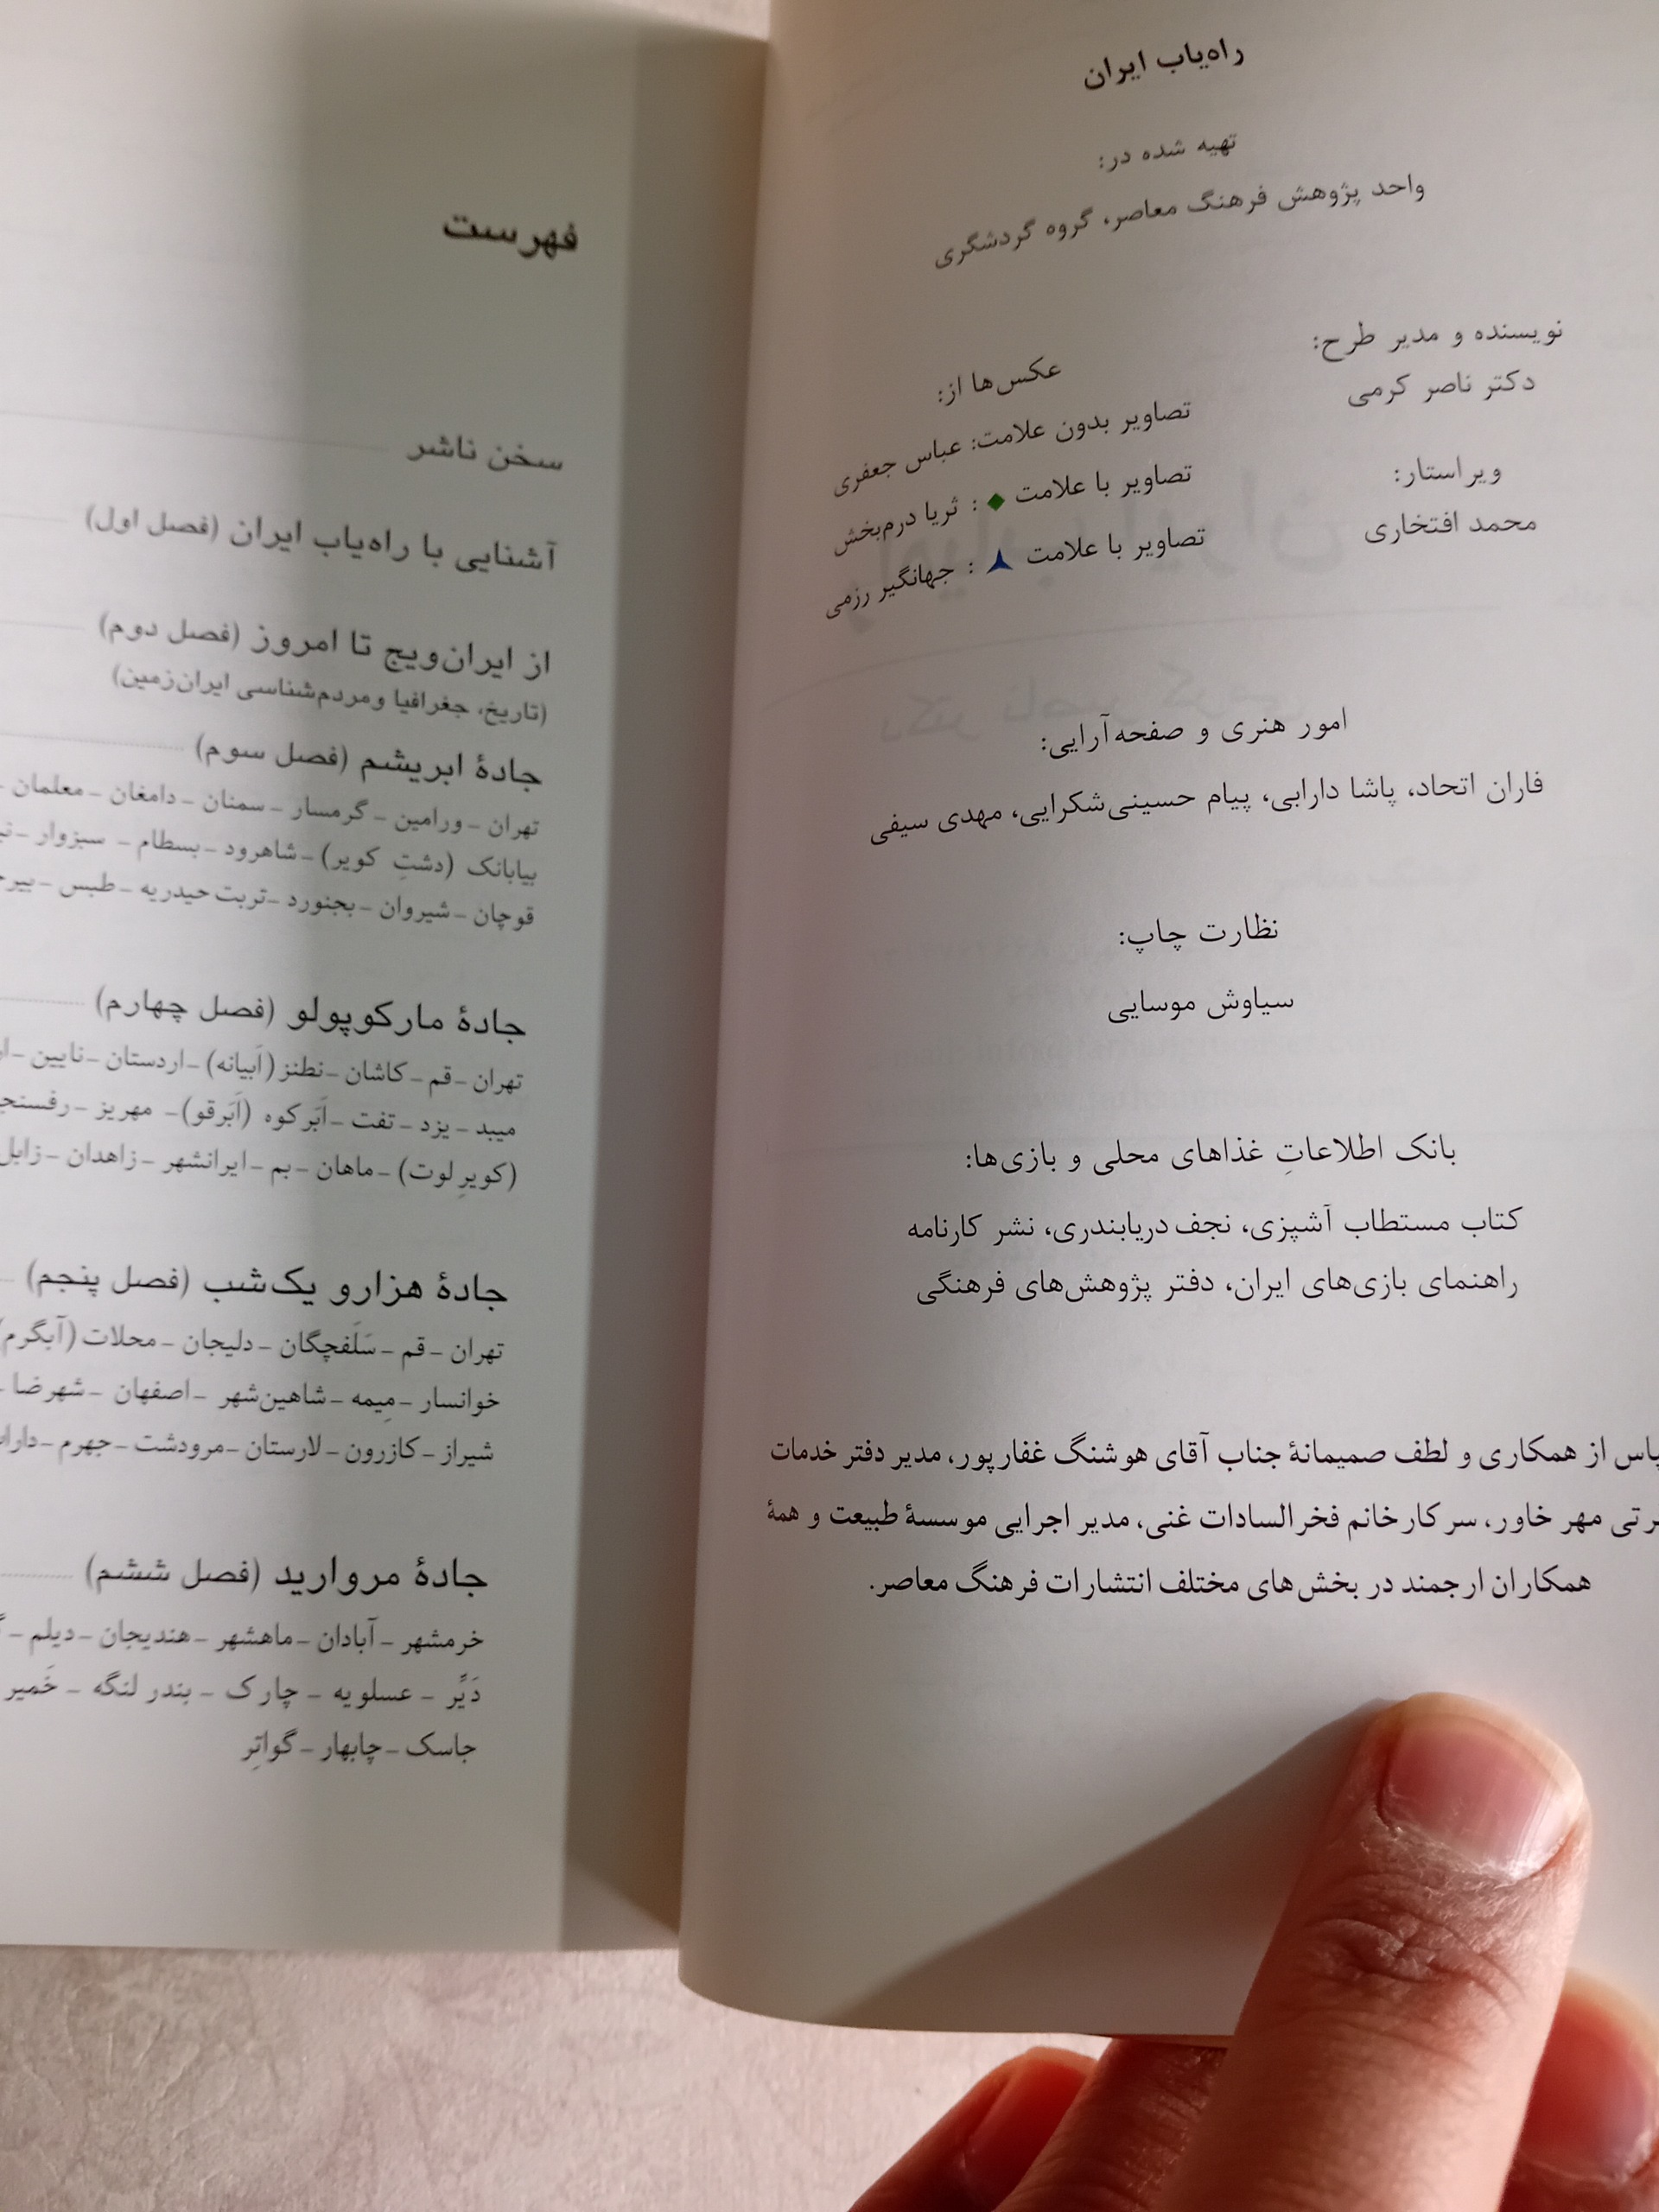 راه‌یاب ایران
تهیه شده در:
واحد پژوهش فرهنگ معاصر، گروه گردشگری
نویسنده و مدیر طرح:
دکتر ناصر کرمی
ویراستار:
محمد افتخاری
عکس‌ها از:
تصاویر بدون علامت: عباس جعفری
تصاویر با علامت ◆ : ثریا درم‌بخش
تصاویر با علامت : جهانگیر رزمی
امور هنری و صفحه‌آرایی:
فاران اتحاد، پاشا دارابی، پیام حسینی‌شکرایی، مهدی سیفی
نظارت چاپ:
سیاوش موسایی
بانک اطلاعاتِ غذاهای محلی و بازی‌ها:
کتاب مستطاب آشپزی، نجف دریابندری، نشر کارنامه
راهنمای بازی‌های ایران، دفتر پژوهش‌های فرهنگی
از همکاری و لطف صمیمانهٔ جناب آقای هوشنگ غفارپور، مدیر دفتر خدمات
مهر خاور، سرکارخانم فخرالسادات غنی، مدیر اجرایی موسسهٔ طبیعت و همهٔ
همکاران ارجمند در بخش‌های مختلف انتشارات فرهنگ معاصر.
فهرست
سخن ناشر
آشنایی با راه‌یاب ایران (فصل اول)
از ایران‌ویج تا امروز (فصل دوم)
(تاریخ، جغرافیا و مردم‌شناسی ایران‌زمین)
جادهٔ ابریشم (فصل سوم)
تهران – ورامین – گرمسار – سمنان – دامغان – معلمان –
بیابانک (دشتِ کویر) – شاهرود – بسطام – سبزوار –
قوچان – شیروان – بجنورد – تربت حیدریه – طبس –
جادهٔ مارکوپولو (فصل چهارم)
تهران – قم – کاشان – نطنز (اَبیانه) – اردستان – نایین –
میبد – یزد – تفت – اَبَرکوه (اَبَرقو) – مهریز –
(کویرِ لوت) – ماهان – بم – ایرانشهر – زاهدان – زابل
جادهٔ هزارو یک‌شب (فصل پنجم)
تهران – قم – سَلَفچگان – دلیجان – محلات (آبگرم)
خوانسار – مِیمه – شاهین‌شهر – اصفهان – شهرضا –
شیراز – کازرون – لارستان – مرودشت – جهرم –
جادهٔ مروارید (فصل ششم)
خرمشهر – آبادان – ماهشهر – هندیجان – دیلم –
دَیِّر – عسلویه – چارک – بندر لنگه – خَمیر
جاسک – چابهار – گواتِر